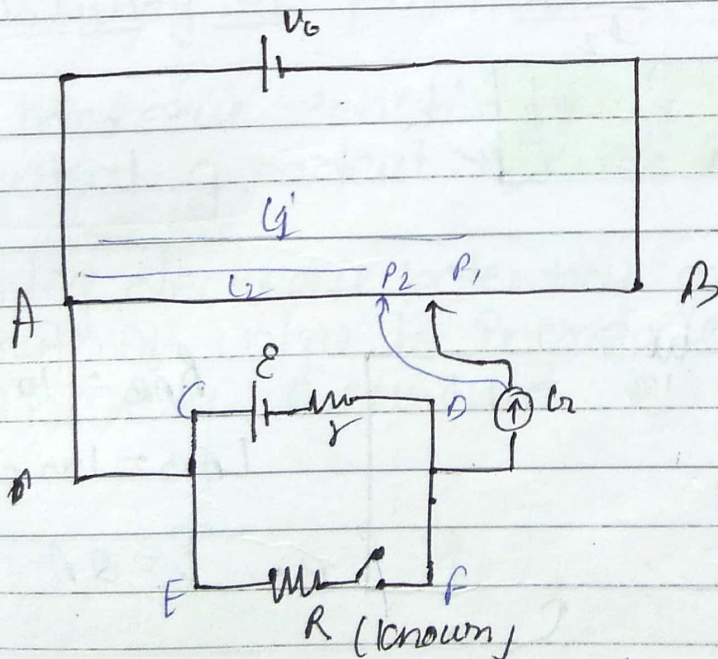 V₀
l₁
l₂
P₂ P₁
A
B
C
ε
r
D
G
E
R (known)
F